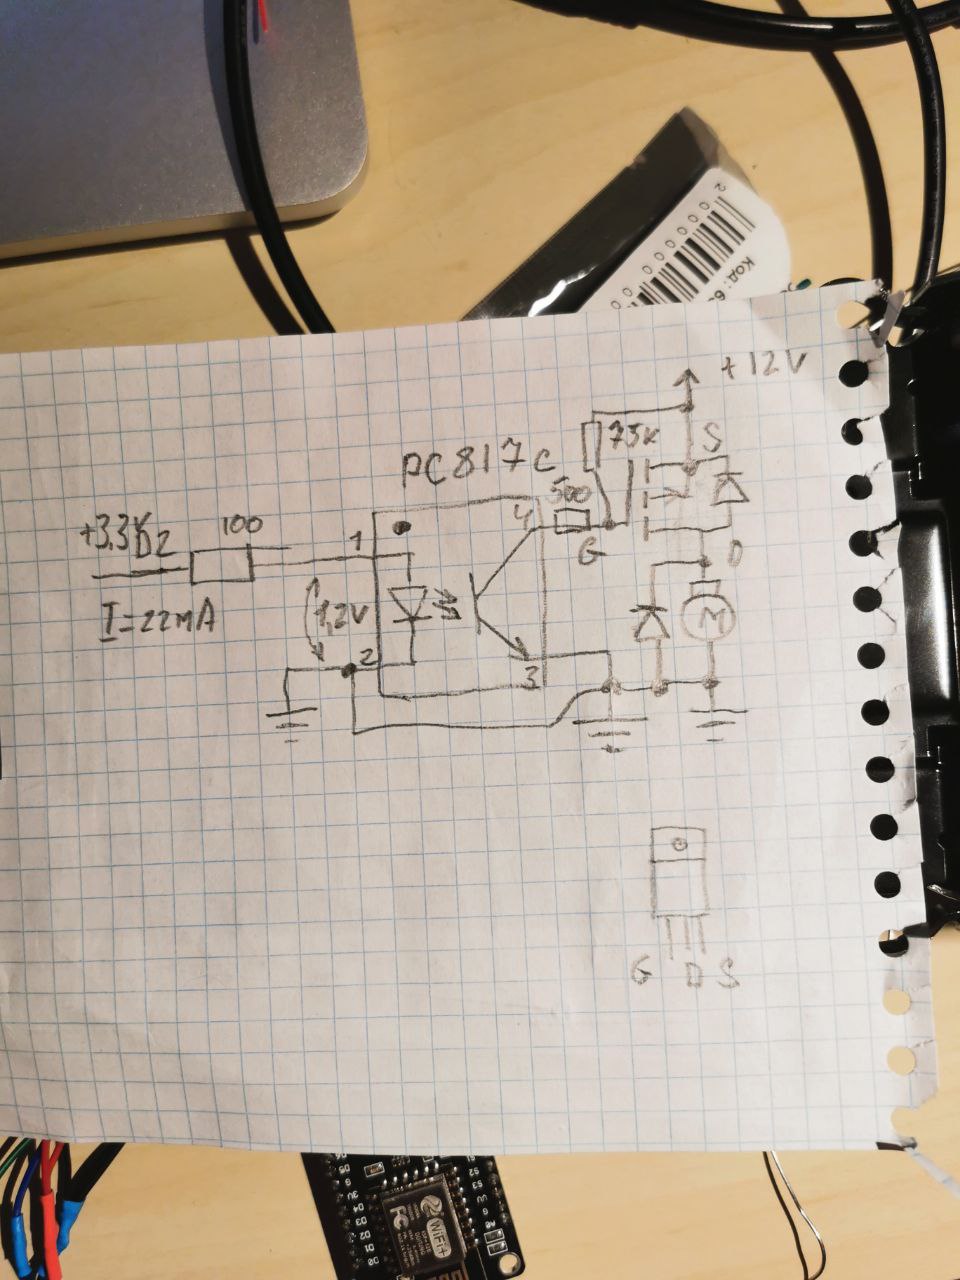 2 000000 0
Код: 6
+12V
75K
S
PC817C
500
4
+3.3V
D2
100
1
G
D
I=22mA
1,2V
M
2
3
G D S
WiFi+